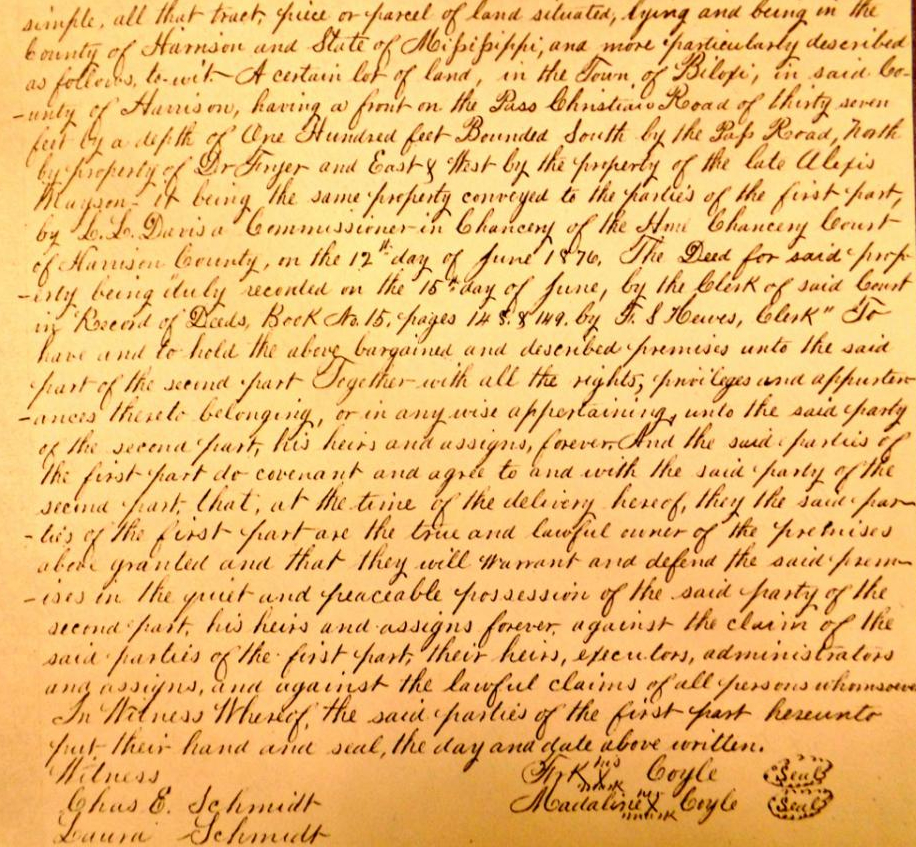 simple, all that tract, piece or parcel of land situated, lying and being in the
County of Harrison and State of Mississippi, and more particularly described
as follows, to-wit- A certain lot of land, in the Town of Biloxi, in said Co-
-unty of Harrison, having a front on the Pass Christian Road of thirty seven
feet by a depth of One Hundred feet Bounded South by the Pass Road, North
by property of Dr Fryer and East & West by the property of the late Alexis
Mayson- it being the same property conveyed to the parties of the first part,
by L. L. Davis a Commissioner in Chancery of the Chancery Court
of Harrison County, on the 12th day of June 1876. The Deed for said prop-
-erty being "duly recorded on the 15th day of June, by the Clerk of said Court
in "Record of Deeds, Book No. 15, pages 148 & 149. by F. S Hewes, Clerk" To
have and to hold the above bargained and described premises unto the said
part of the second part Together with all the rights, privileges and appurten-
-ances thereto belonging, or in any wise appertaining, unto the said party
of the second part, his heirs and assigns, forever. And the said parties of
the first part do covenant and agree to and with the said party of the
second part, that, at the time of the delivery hereof, they the said par-
-ties of the first part are the true and lawful owner of the premises
above granted and that they will warrant and defend the said prem-
-ises in the quiet and peaceable possession of the said party of the
second part, his heirs and assigns forever, against the claim of the
said parties of the first part, their heirs, executors, administrators
and assigns, and against the lawful claims of all persons whomsoever
In Witness Whereof, the said parties of the first part hereunto
put their hand and seal, the day and date above written.
Witness Frk his X mark Coyle (Seal)
Chas E. Schmidt Madaline his X mark Coyle (Seal)
Laura Schmidt